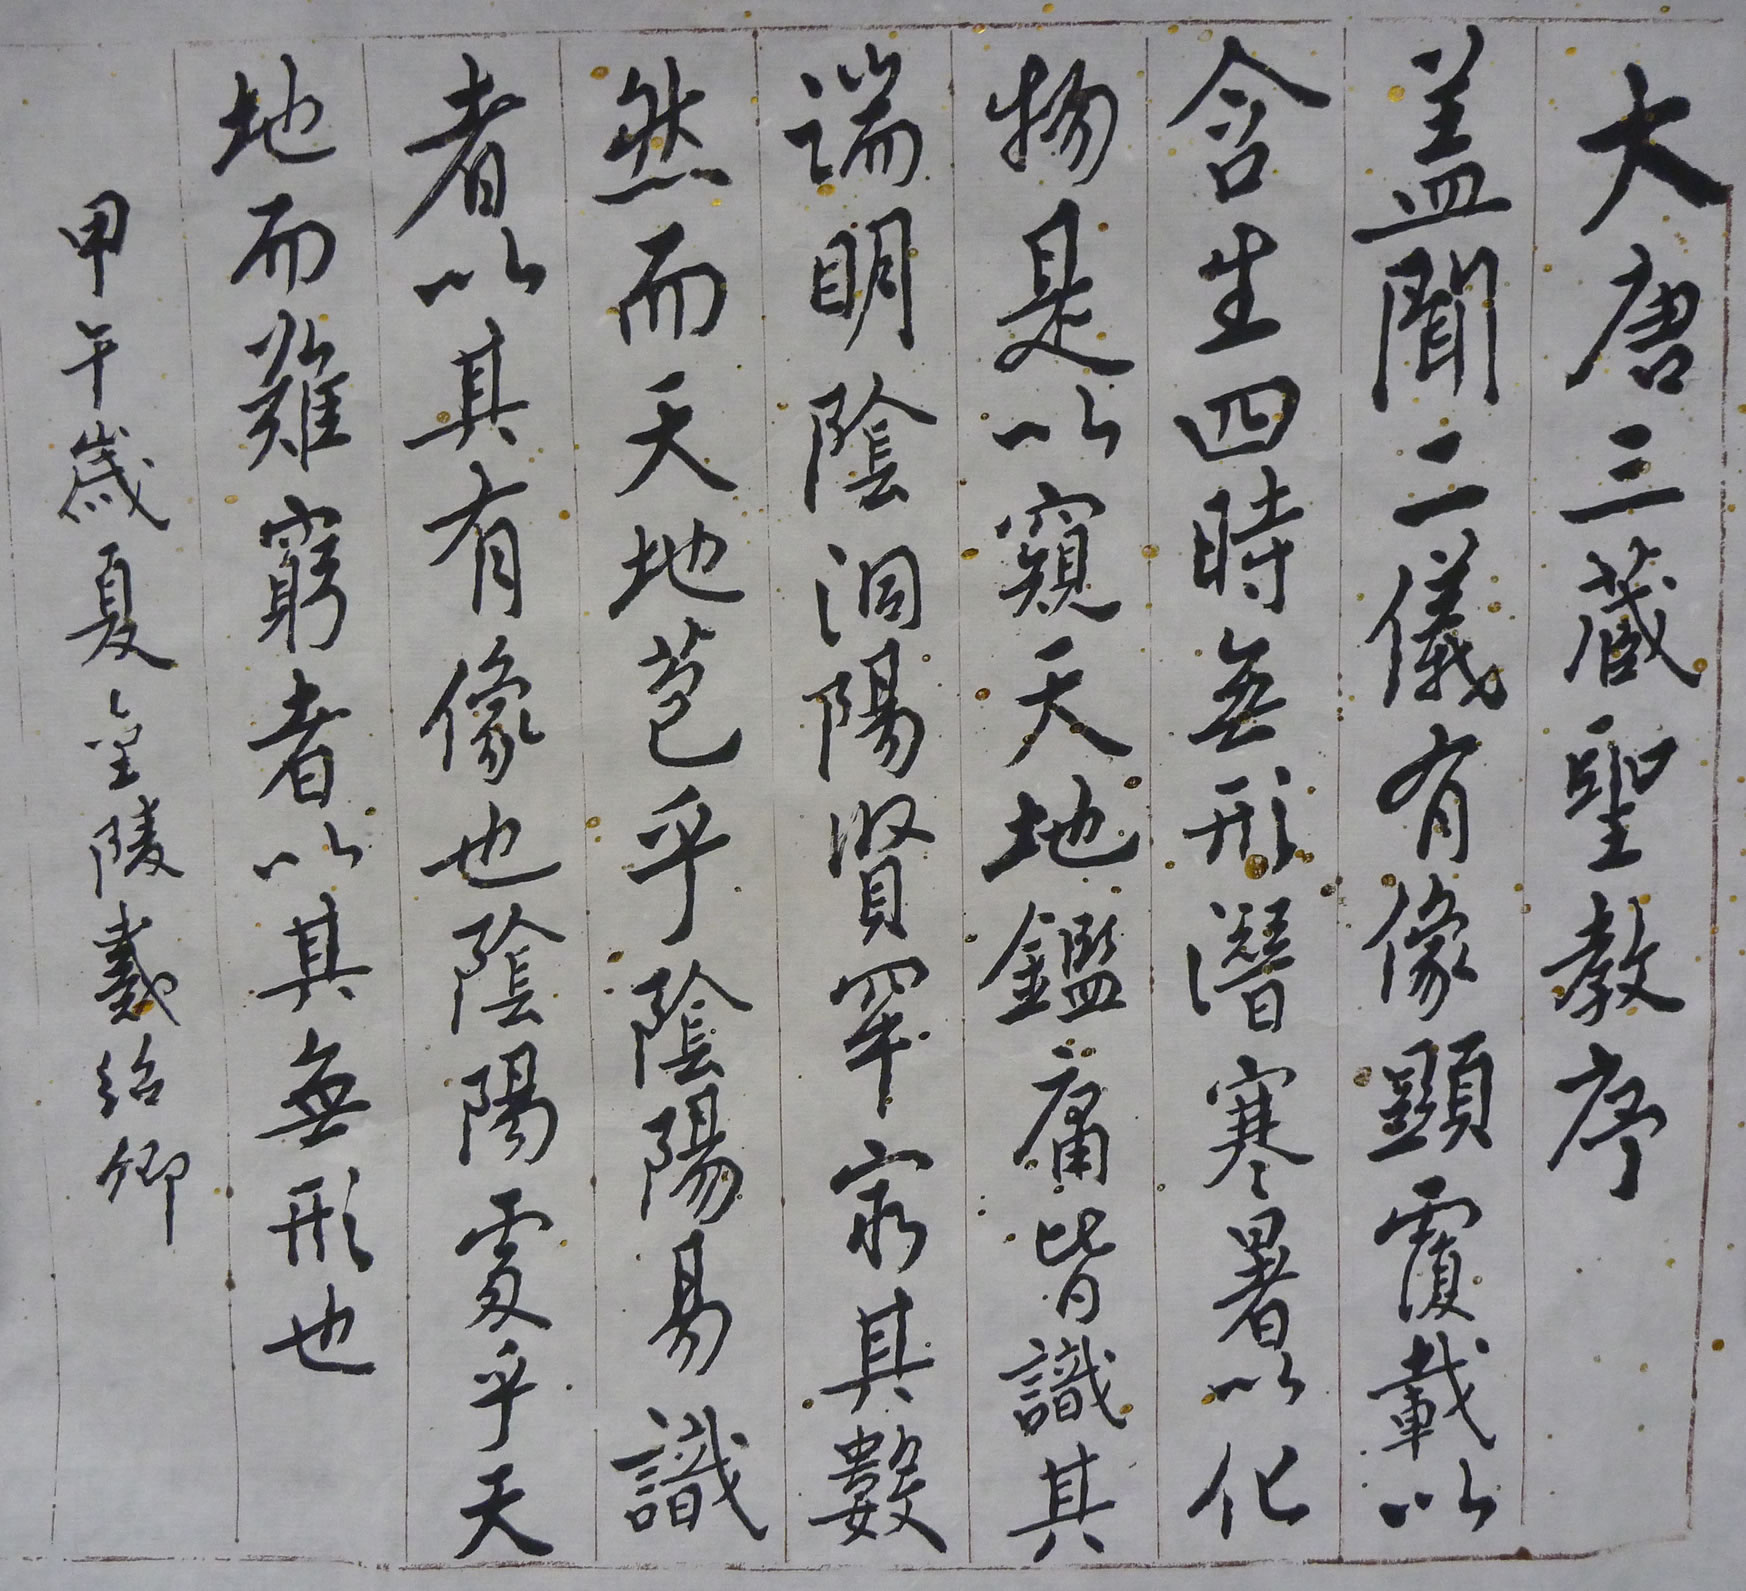 大唐三藏聖教序
蓋聞二儀有像顯覆載以
含生四時無形潛寒暑以化
物是以窺天地鑑庸皆識其
端明陰洞陽賢罕窮其數
然而天地苞乎陰陽易識
者以其有像也陰陽處乎天
地而難窮者以其無形也
甲午歲夏金陵戴紹卿